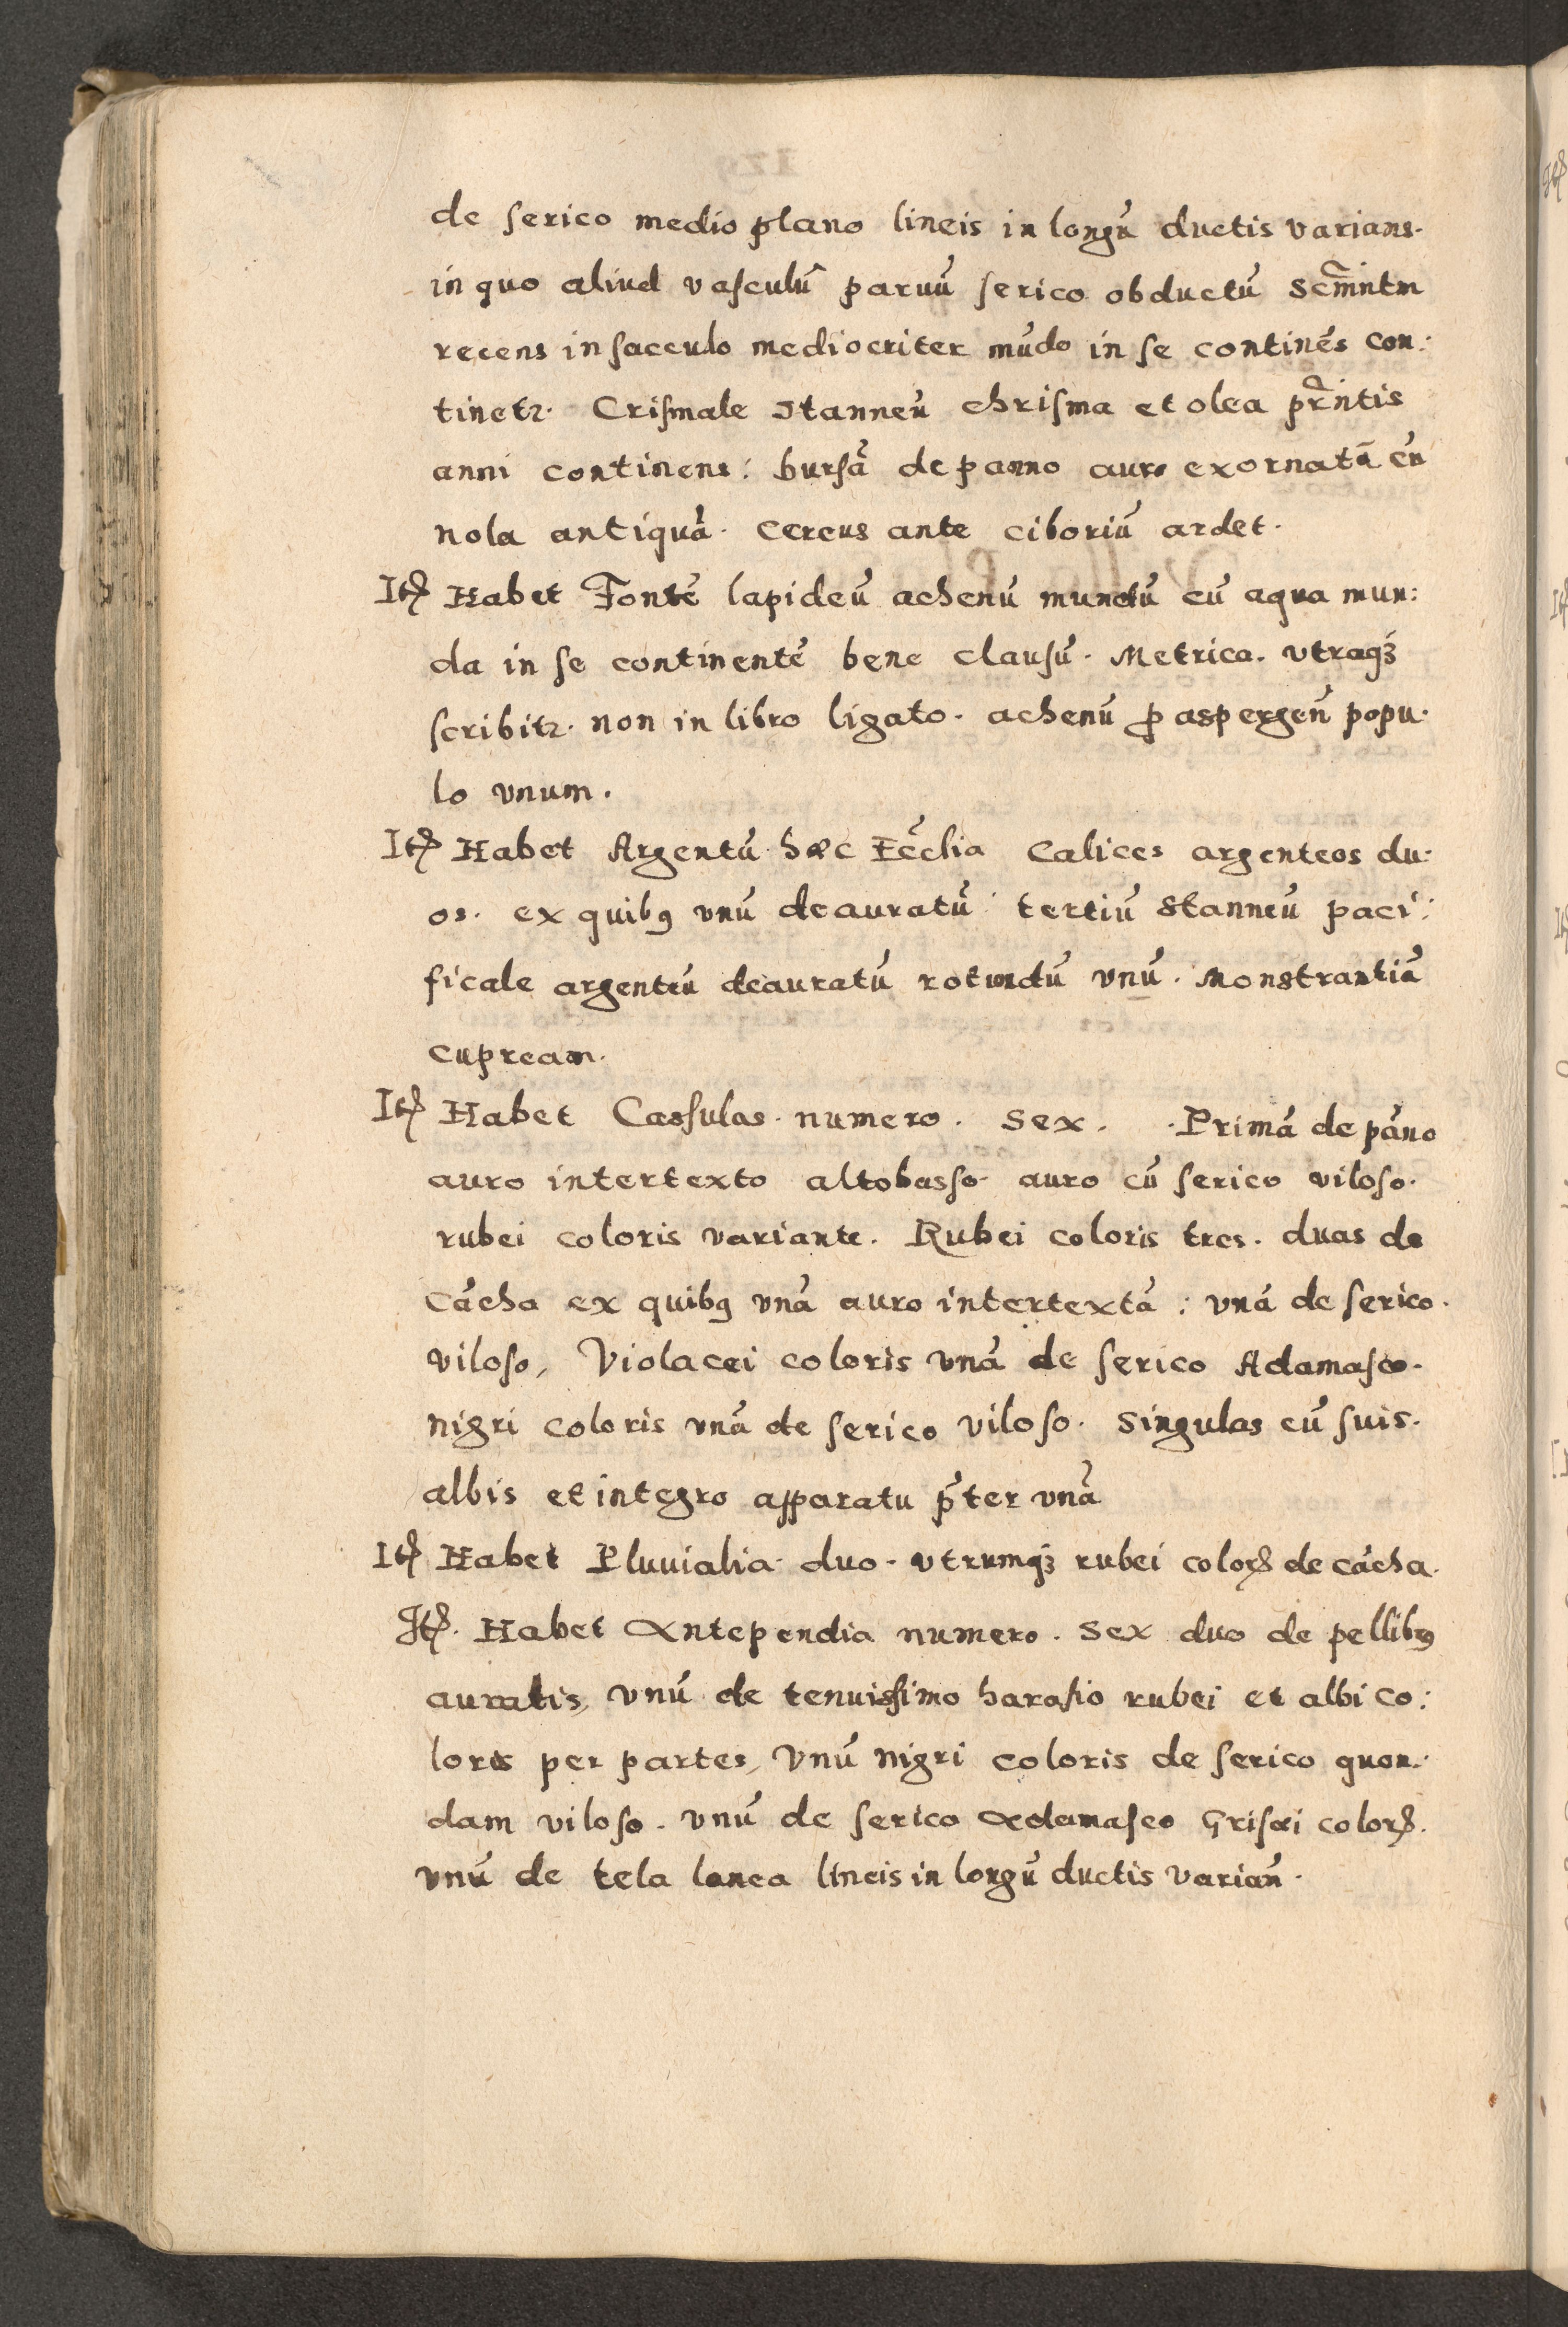 de serico medio plano lineis in longũ ductis varians.
in quo aliud vasculũ paruũ serico obductũ Scr̃amntm
recens in sacculo mediocriter mũdo in se continẽs con:
tinetr. Crismale stanneũ chrisma et olea pr̃ntis
anni continens: bursã de panno auro exornatã cũ
nola antiquã. Cereus ante ciboriũ ardet.
Itẽ Habet Fontẽ lapideũ achenũ mundũ cũ aqua mun:
da in se continentẽ bene clausũ. Metrica. vtraqꝫ
scribitr. non in libro ligato. achenũ ꝓ aspergeñ popu.
lo vnum.
Itẽ Habet Argentũ hæc Eccl̃ia Calices argenteos du:
os. ex quibꝰ vnũ deauratũ: tertiũ stanneũ paci:
ficale argenteũ deauratũ rotundũ vnũ. Monstrantiã
cupream.
Itẽ Habet Cassulas. numero. Sex. .Primã de pãno
auro intertexto altobasso. auro cũ serico viloso.
rubei coloris variante. Rubei coloris tres. duas de
Cãcha ex quibꝰ vnã auro intertextã: vnã de serico.
viloso, Violacei coloris vnã de serico Adamasco.
nigri coloris vnã de serico viloso. Singulas cũ suis.
albis et integro apparatu p̃ter vnã
Itẽ Habet Pluuialia. duo. vtrumqꝫ rubei colorꝭ de cãcha.
Itẽ. Habet Antependia numero. Sex duo de pellibꝰ
auratis, vnũ de tenuissimo harasio rubei et albi co:
loris per partes, Vnũ nigri coloris de serico quon:
dam viloso. vnũ de serico Adamasco Grisei colorꝭ.
vnũ de tela lanea lineis in longũ ductis variañ.